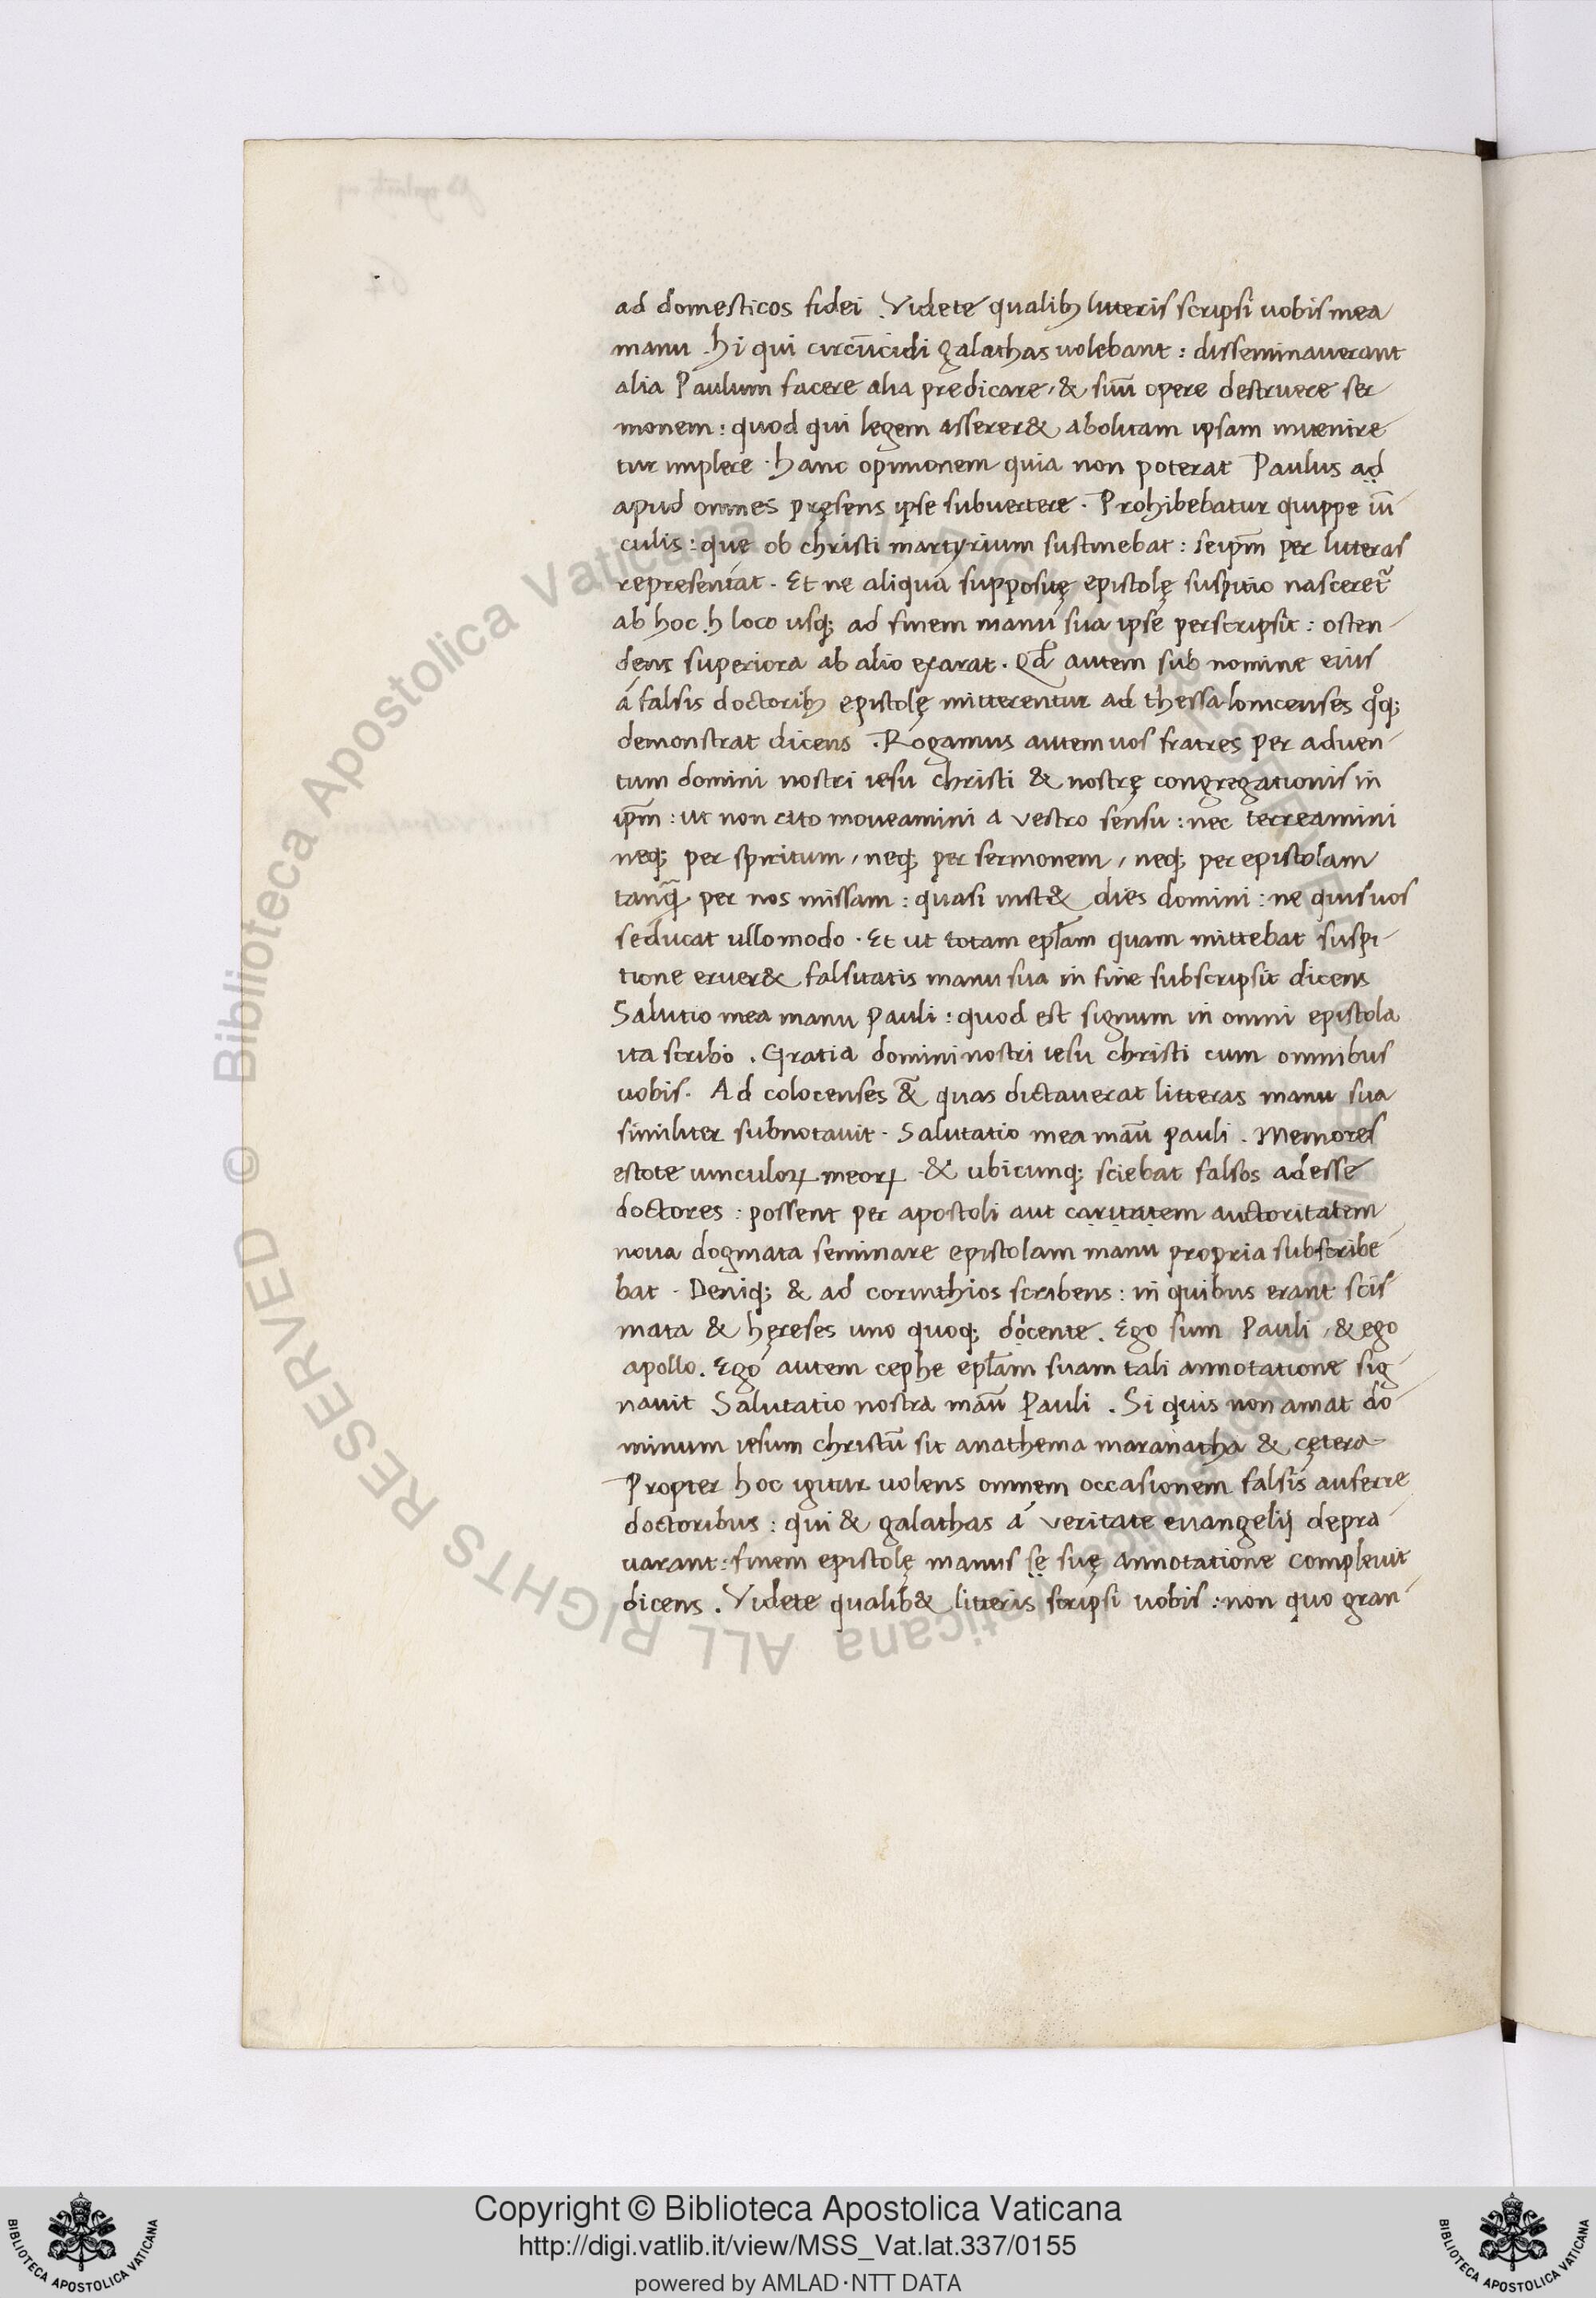 ad domesticos fidei . Videte qualibꝫ litteris scripsi uobis mea
manu . hi qui circūcidi galathas uolebant : disseminauerant
alia Paulum facere alia predicare , & suū opere destruere ser
monem : quod qui legem asserer& abolitam ipsam inuenire
tur implere . hanc opinionem quia non poterat Paulus ad
apud omnes pręsens ipse subuertere . Prohibebatur quippe uī
culis : quę ob christi martyrium sustinebat : seip̄m per litteras
representat . Et ne aliqua suppositę epistolę suspitio nasceret᷑
ab hoc h loco usq; ad finem manu sua ipse perscripsit : osten
dens superiora ab alio exarat . Qđ autem sub nomine eius
á falsis doctoribꝫ epistolę mitterentur ad thessalonicenses qͦq;
demonstrat dicens . Rogamus autem uos fratres per aduen
tum domini nostri iesu christi & nostrę congregationis in
ip̄m : ut non cito moueamini a vestro sensu : nec terreamini
neq; per spiritum , neq; per sermonem , neq; per epistolam
tanq̄ per nos missam : quasi inst& dies domini : ne quis uos
seducat ullo modo . Et ut totam ep̄lam quam mittebat suspi
tione eruer& falsitatis manu sua in fine subscripsit dicens
Salutio mea manu pauli : quod est signum in omni epistola
ita scribo . Gratia domini nostri iesu christi cum omnibus
uobis . Ad colocenses &̄ quas dictauerat litteras manu sua
similiter subnotauit . Salutatio mea maū pauli . Memores
estote uinculoꝝ meoꝝ . & ubicunq; sciebat falsos adesse
doctores : possent per apostoli aut caritatem auctoritatem
noua dogmata seminare epistolam manu propria subscribe
bat . Deniq; & ad corinthios scribens : in quibus erant scis
mata & hęreses uno quoq; docente . Ego sum Pauli , & ego
apollo . Ego autem cephe ep̄lam suam tali annotatione sig
nauit Salutatio nostra maū Pauli . Si quis non amat do
minum iesum christū sit anathema maranatha & cętera
Propter hoc igitur uolens omnem occasionem falsis auferre
doctoribus : qui & galathas á veritate euangelij depra
uarant : finem epistolę manus se suę annotatione compleuit
dicens . Videte qualib& litteris scripsi uobis : non quo gran
© Biblioteca Apostolica Vaticana ALL RIGHTS RESERVED
Copyright © Biblioteca Apostolica Vaticana
http://digi.vatlib.it/view/MSS_Vat.lat.337/0155
powered by AMLAD·NTT DATA
BIBLIOTECA APOSTOLICA VATICANA
BIBLIOTECA APOSTOLICA VATICANA